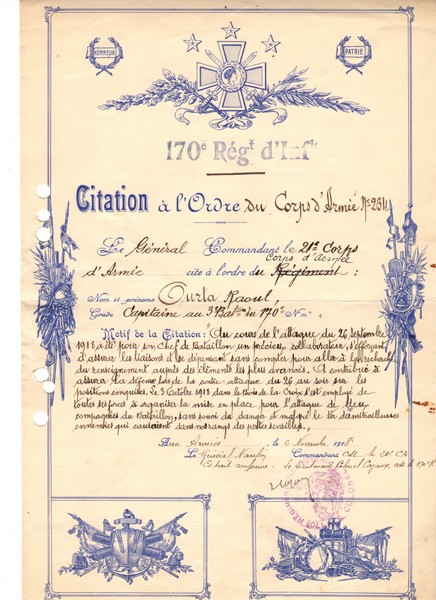 HONNEUR
PATRIE
170e Régt d'Infie
Citation à l'Ordre du Corps d'Armée No 234
Le Général Commandant le 21e Corps
Corps d'Armée
d'Armée cite à l'ordre du Régiment :
Nom et prénoms Ourta Raoul,
Grade Capitaine au 3e Baton du 170e Ri
Motif de la Citation : Au cours de l'attaque du 26 septembre
1918 a été pour son Chef de Bataillon un précieux collaborateur, s'efforçant
d'assurer les liaisons et se dépensant sans compter pour aller à la recherche
du renseignement auprès des éléments les plus avancés. A contribué à
assurer la défense lors de la contre-attaque du 26 au soir sur les
positions conquises. Le 3 Octobre 1918 dans le bois de la Croix s'est employé de
toutes ses forces à organiser la mise en place pour l'attaque de deux
compagnies du Bataillon, sans souci du danger et malgré le tir de mitrailleuses
ennemies qui causaient dans nos rangs des pertes sensibles.
Aux Armées le 6 Novembre 1918
Le Général Naulin Commandant le 21e C.A
Extrait conforme : Le Lieutenant Colonel Cdt le 170e R.I